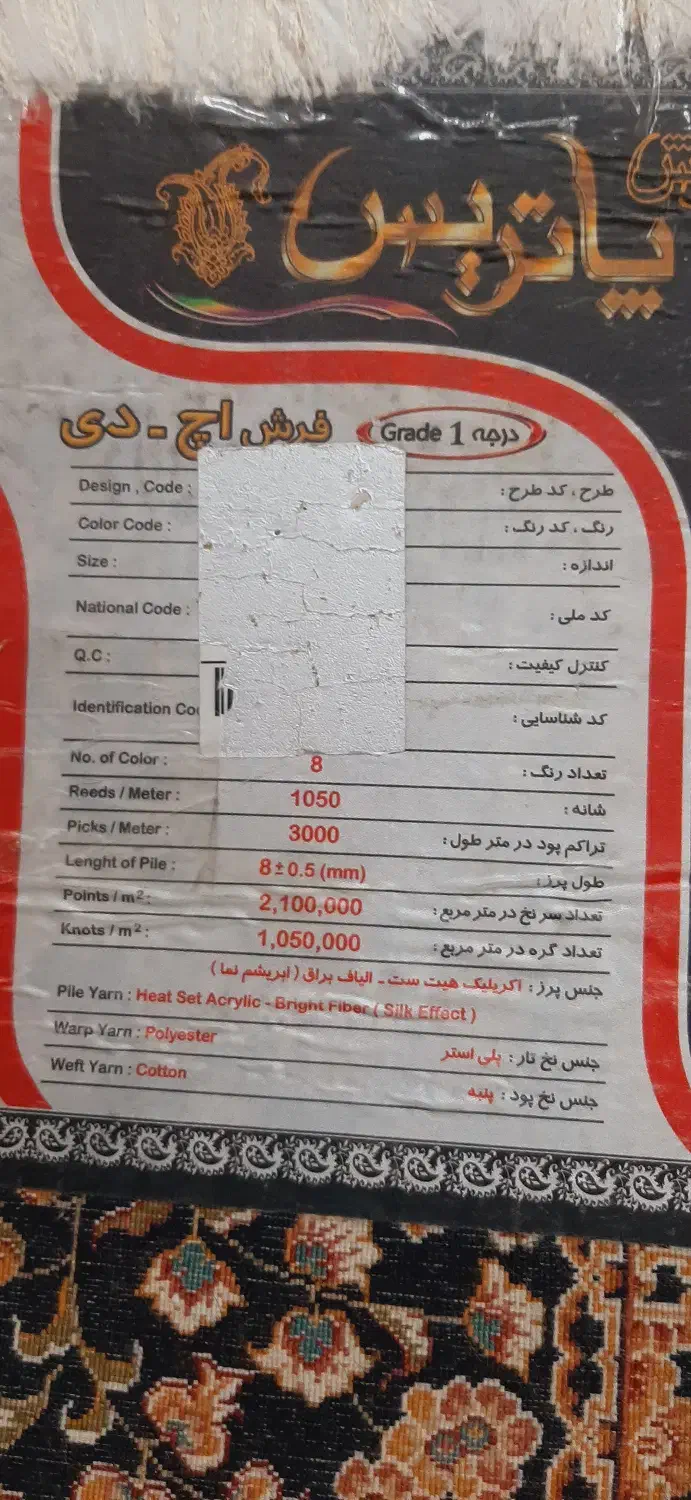 پاتریس
فرش اچ - دی
درجه 1 Grade
Design , Code : طرح ، کد طرح :
Color Code : رنگ ، کد رنگ :
Size : اندازه :
National Code : کد ملی :
Q.C : کنترل کیفیت :
Identification کد شناسایی :
No. of Color : 8 تعداد رنگ :
Reeds / Meter : 1050 شانه :
Picks / Meter : 3000 تراکم پود در متر طول :
Lenght of Pile : 8±0.5 (mm) طول پرز :
Points / m2 : 2,100,000 تعداد سر نخ در متر مربع :
Knots / m2 : 1,050,000 تعداد گره در متر مربع :
جنس پرز : اکریلیک هیت ست - الیاف براق ( ابریشم نما )
Pile Yarn : Heat Set Acrylic - Bright Fiber ( Silk Effect )
Warp Yarn : Polyester جنس نخ تار : پلی استر
Weft Yarn : Cotton جنس نخ پود : پنبه